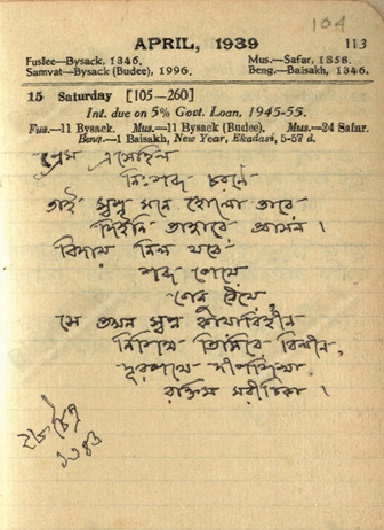 104
APRIL, 1939 113
Fuslee—Bysack, 1346. Mus.—Safar, 1358.
Samvat—Bysack (Budee), 1996. Beng.—Baisakh, 1346.
15 Saturday [105—260]
Int. due on 5% Govt. Loan, 1945-55.
Fus.—11 Bysack. Mus.—11 Bysack (Budee). Mus.—24 Safar.
Beng.—1 Baisakh, New Year, Ekadasi, 5-57 d.
প্রেম এসেছিল
নিঃশব্দ চরণে
তাই স্বপ্ন মনে হোলো তারে
দিইনি তাহারে আসন ।
বিদায় নিল যবে
শব্দ পেয়ে
গেনু ধেয়ে,
সে তখন স্বপ্ন কায়াবিহীন
নিশীথ তিমিরে বিলীন,
দূরপথে দীপশিখা
রক্তিম মরীচিকা ।